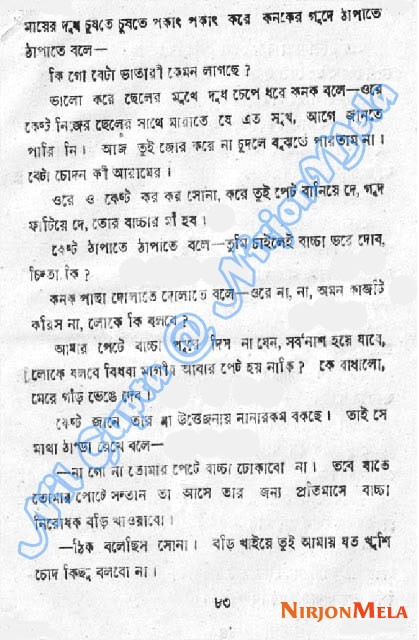 মায়ের দুধ চুষতে চুষতে পকাৎ পকাৎ করে কনকের গুদে ঠাপাতে
ঠাপাতে বলে—
কি গো বেটা ভাতারী কেমন লাগছে ?
ভালো করে ছেলের মুখে দুধ চেপে ধরে কনক বলে—ওরে
কেষ্ট নিজের ছেলের সাথে মারাতে যে এত সুখ, আগে জানতে
পারি নি। আজ তুই জোর করে না চুদলে বুঝতে পারতাম না।
বেটা চোদন কী আরামের।
ওরে ও কেষ্ট কর কর সোনা, করে তুই পেট বানিয়ে দে, গুদ
ফাটিয়ে দে, তোর বাচ্চার মাঁ হব।
কেষ্ট ঠাপাতে ঠাপাতে বলে—তুমি চাইলেই বাচ্চা ভরে দোব,
চিন্তা কি ?
কনক পাছা দোলাতে দোলাতে বলে—ওরে না, না, অমন কাজটি
করিস না, লোকে কি বলবে ?
আমার পেটে বাচ্চা দিস না যেন, সর্বনাশ হয়ে যাবে,
লোকে বলবে বিধবা মাগীর আবার পেট হয় নাকি ? কে বাধালো,
মেরে গাঁড় ভেঙে দেব।
কেষ্ট জানে তার মা উত্তেজনায় নানারকম বকছে। তাই সে
মাথা ঠাণ্ডা রেখে বলে—
—না গো না তোমার পেটে বাচ্চা ঢোকাবো না। তবে যাতে
তোমার পেটে সন্তান তা আসে তার জন্য প্রতিমাসে বাচ্চা
নিরোধক বড়ি খাওয়াবো।
—ঠিক বলেছিস সোনা। বড়ি খাইয়ে তুই আমায় যত খুশি
চোদ কিছু বলবো না।
৮৩
NirjonMela